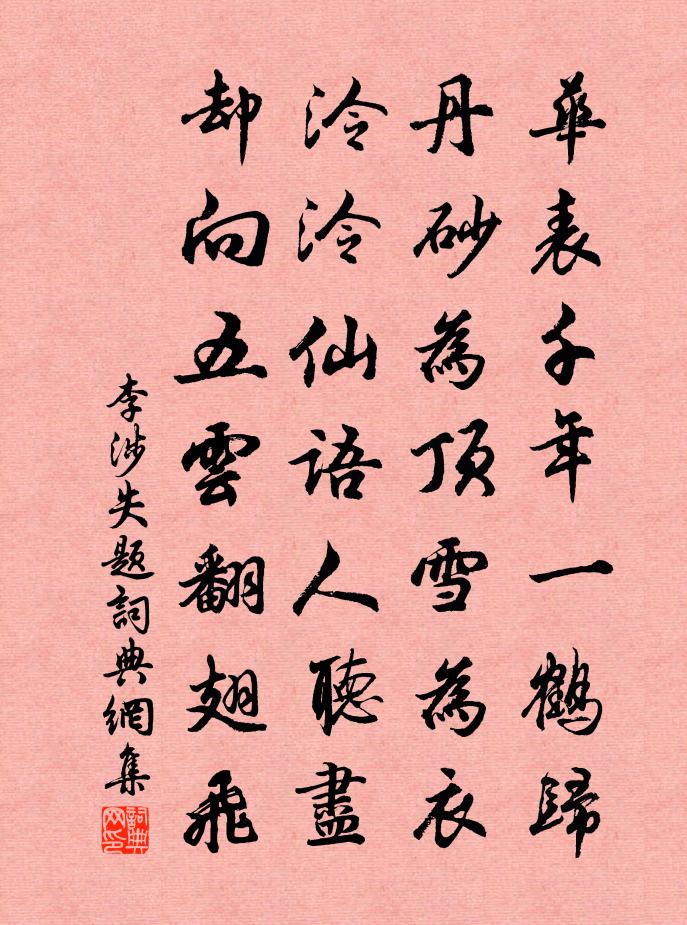 華表千年一鶴歸
丹砂為頂雪為衣
泠泠仙語人聽盡
却向五雲翻翅飛
李涉失題詞典網集
詞典网印